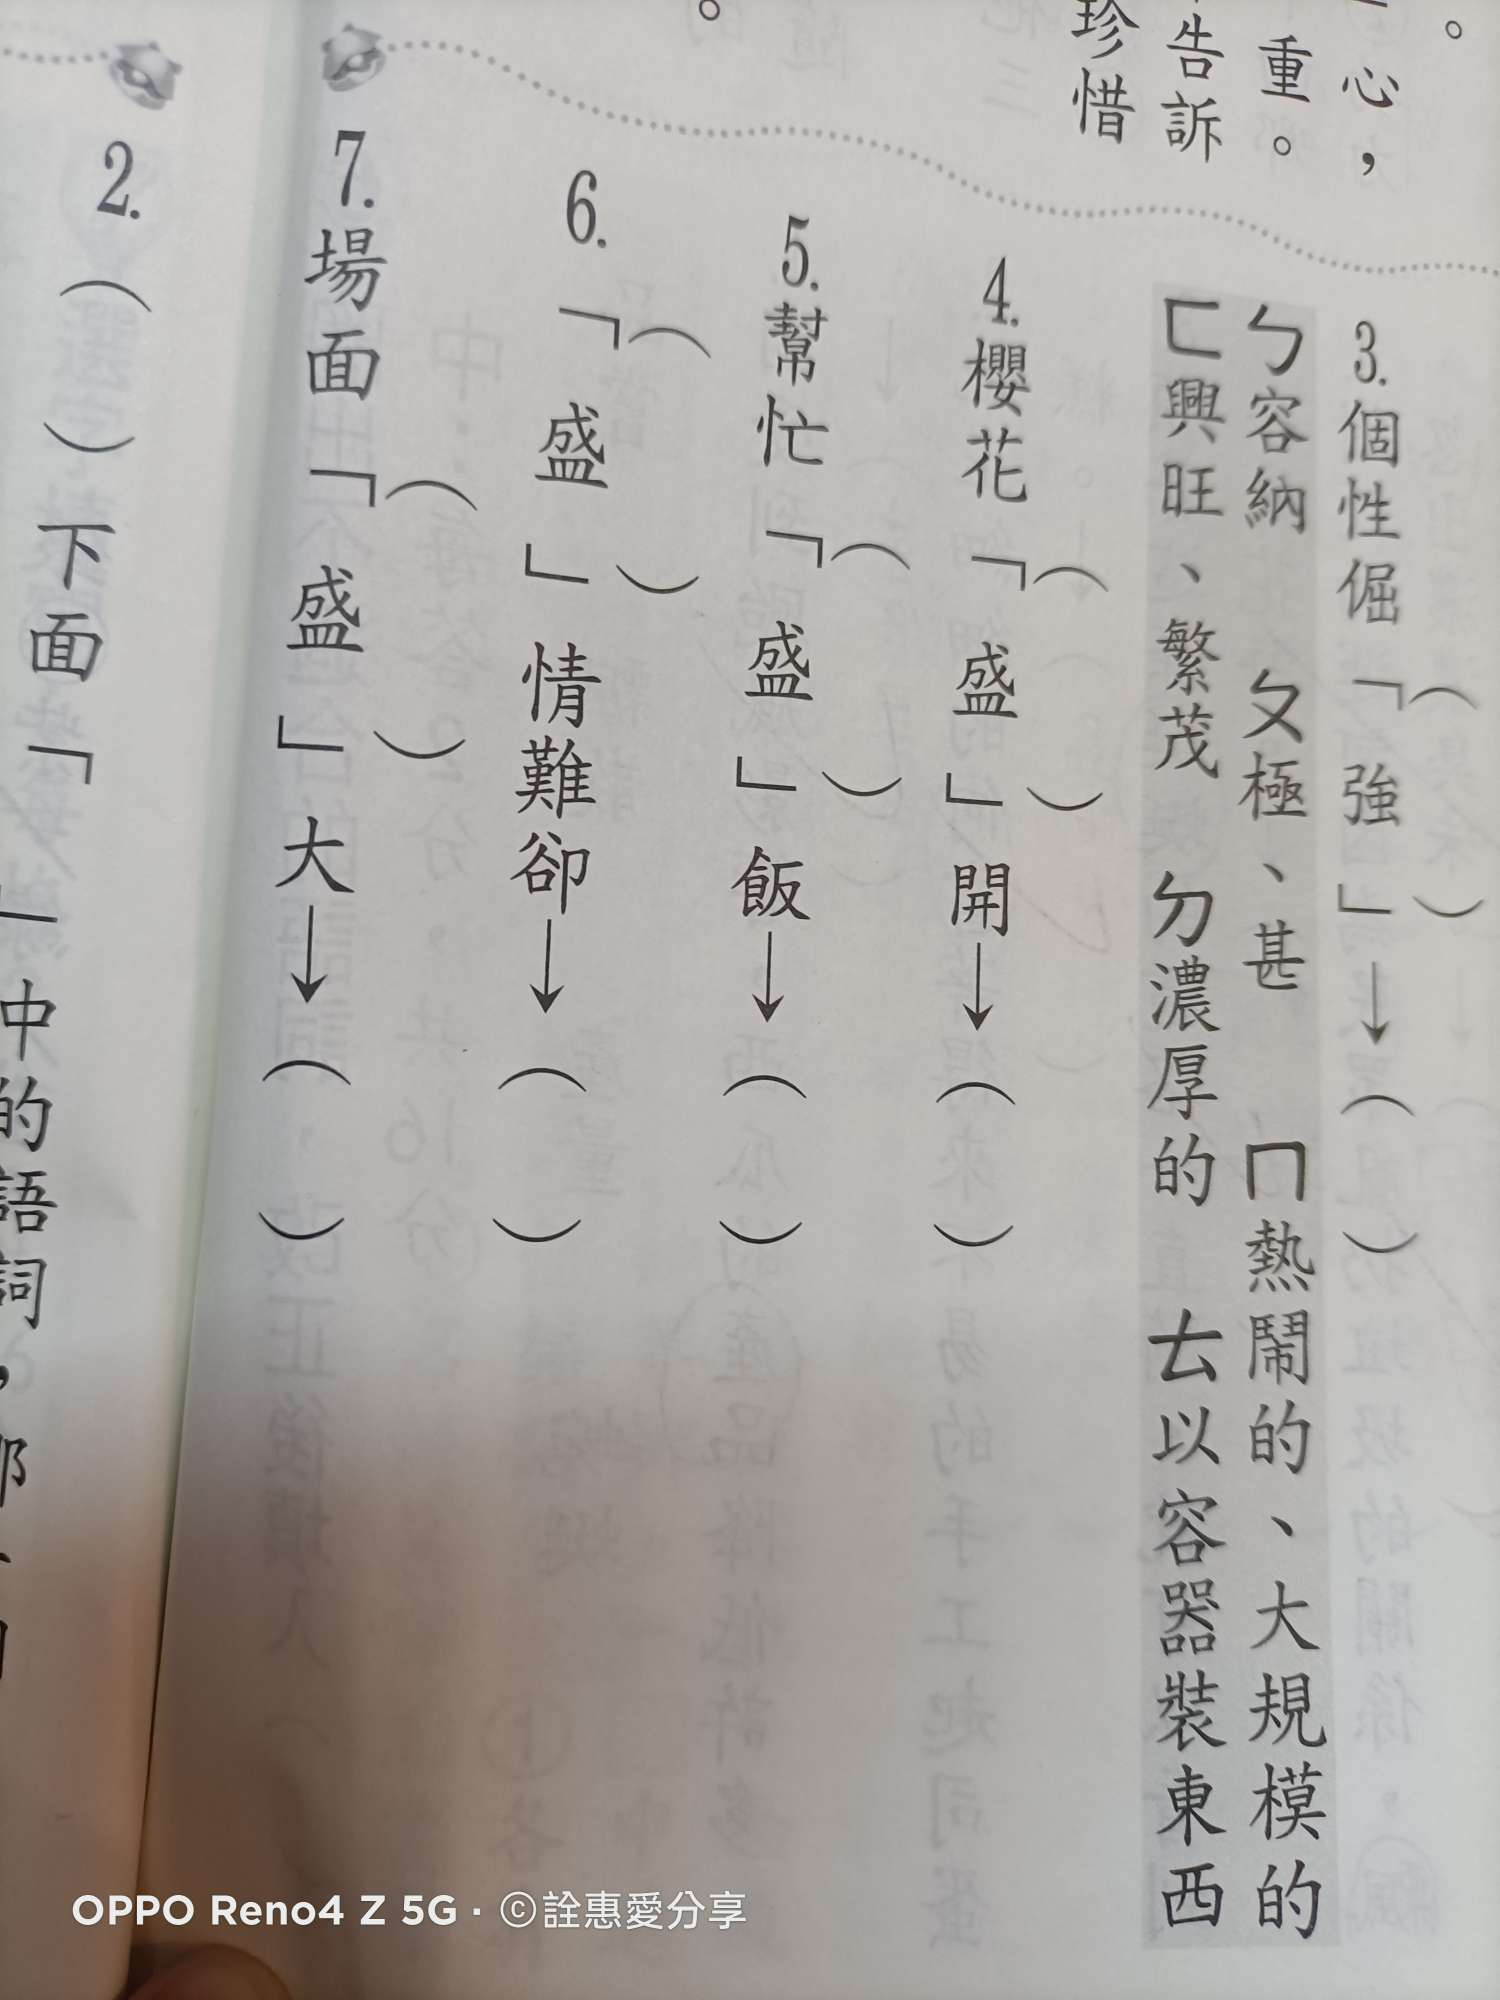 。
心，
重。
告訴
珍惜
3.個性倔「強」→（　）
（　）
ㄅ容納　ㄆ極、甚　ㄇ熱鬧的、大規模的
ㄈ興旺、繁茂　ㄉ濃厚的　ㄊ以容器裝東西
4.櫻花「盛」開→（　）
（　）
5.幫忙「盛」飯→（　）
（　）
6.「盛」情難卻→（　）
（　）
7.場面「盛」大→（　）
（　）
。
2.（　）下面「　」中的語詞，
OPPO Reno4 Z 5G · ©詮惠愛分享